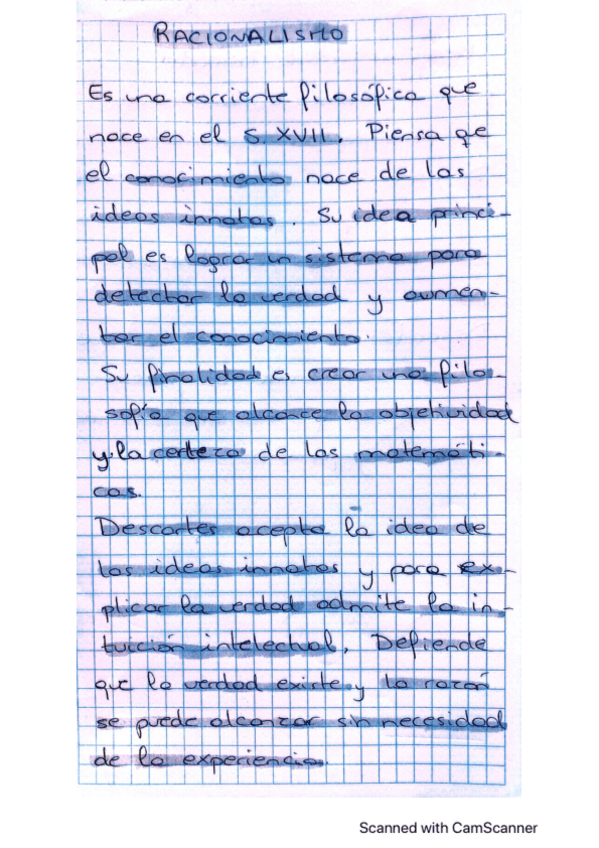 RACIONALISMO
Es una corriente filosófica que
nace en el S. XVII. Piensa que
el conocimiento nace de las
ideas innatas. Su idea princi-
pal es lograr un sistema para
detectar la verdad y aumen-
tar el conocimiento.
Su finalidad es crear una filo-
sofía que alcance la objetividad
y la certeza de las matemáti-
cas.
Descartes acepta la idea de
las ideas innatas y para ex-
plicar la verdad admite la in-
tuición intelectual. Defiende
que la verdad existe y la razón
se puede alcanzar sin necesidad
de la experiencia.
Scanned with CamScanner